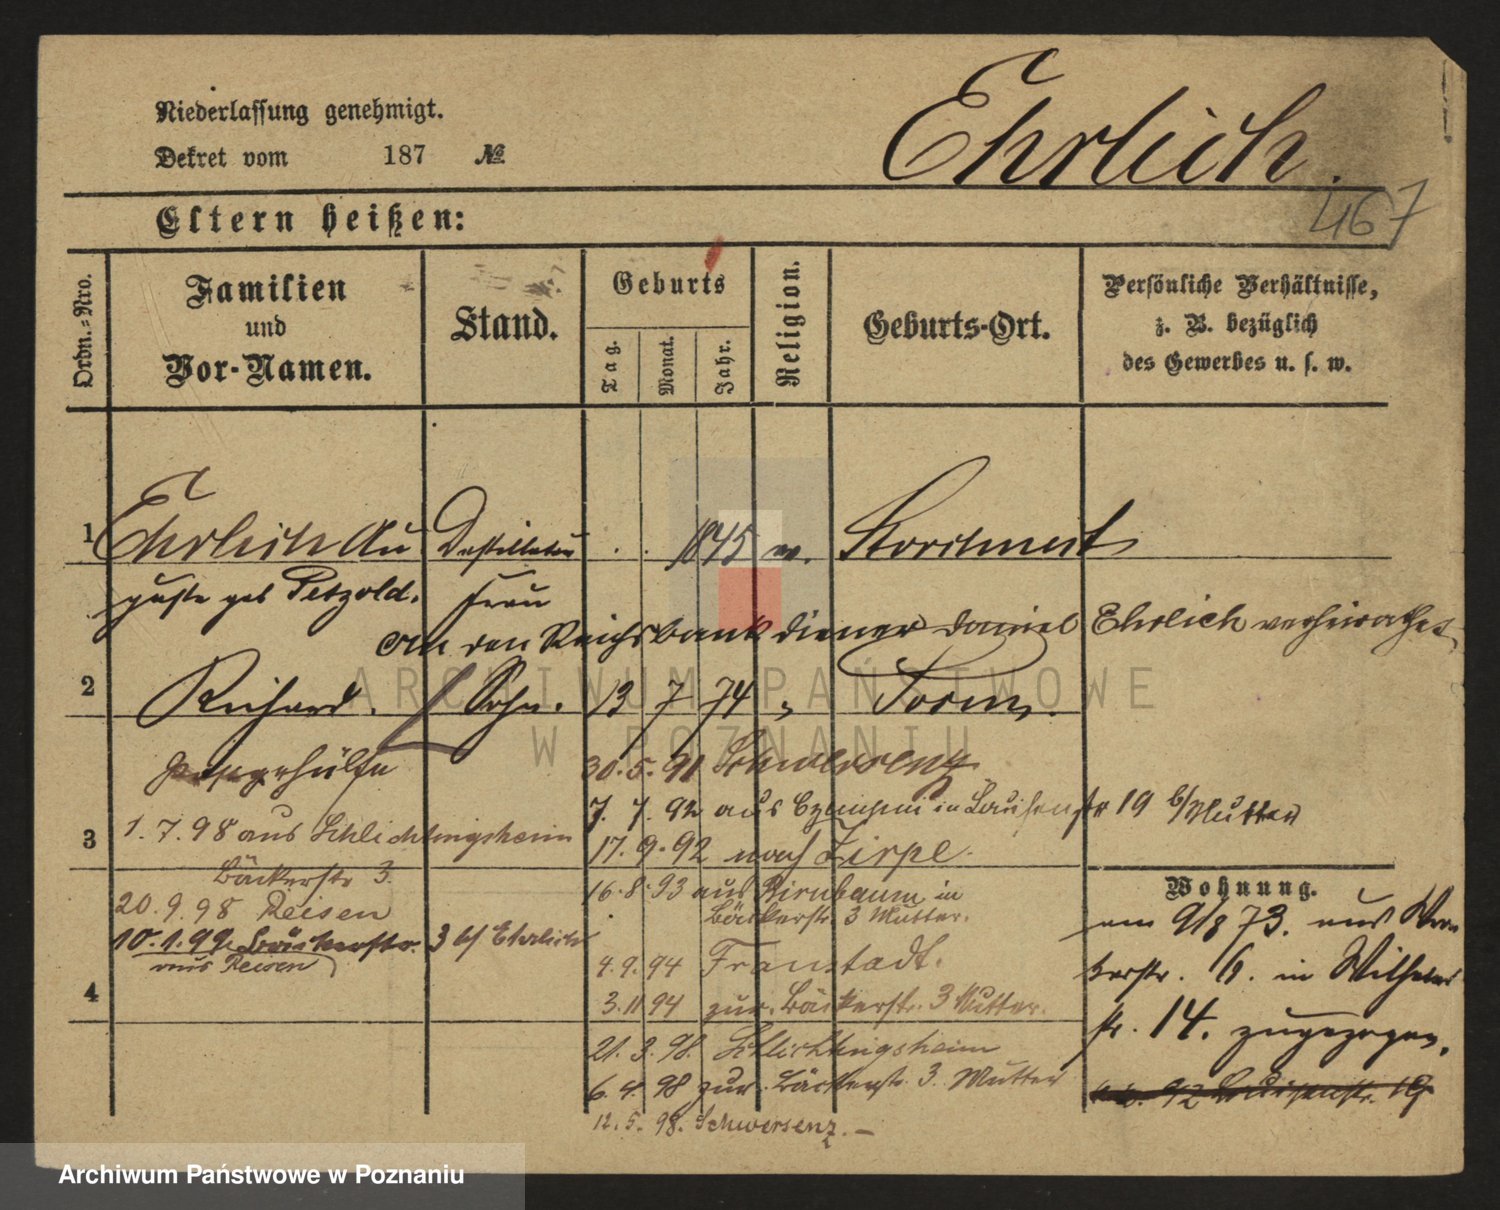 Niederlassung genehmigt.
Dekret vom 187 №
Ehrlich.
467
Eltern heißen:
Ordn.-Nro.
Familien und Vor-Namen.
Stand.
Geburts
Tag.
Monat.
Jahr.
Religion.
Geburts-Ort.
Persönliche Verhältnisse,
z. B. bezüglich
des Gewerbes u. s. w.
1 Ehrlich Au Destillateur . . 1845
guste geb Petzold. Frau
an den Reichsbankdiener Daniel Ehrlich verheirathet
ARCHIWUM PAŃSTWOWE
W POZNANIU
2 Richard. Sohn. 13 7 74 "
30. 5. 91 Schwersenz
7. 7. 92 aus in Louisenstr 19 b/ Mutter
3 1. 7. 98 aus Schlichtingsheim
17. 9. 92 nach Zirpe.
Bäckerstr 3.
Wohnung.
16. 8. 93 aus Birnbaum in
Bäckerstr. 3 Mutter.
20. 9. 98 Reisen
10. 1. 99 Bäckerstr. 3 b/ Ehrlich
aus Reisen
4. 9. 94 Fraustadt.
4
3. 11 94 zur. Bäckerstr. 3 Mutter.
21. 3. 98. Schlichtingsheim
6. 4. 98 zur. Bäckerstr. 3. Mutter
12. 5. 98. Schwersenz. —
am 9/8 73. aus
kerstr. 6. in Wilhelms
str. 14. zugezogen.
92 Louisenstr. 19
Archiwum Państwowe w Poznaniu